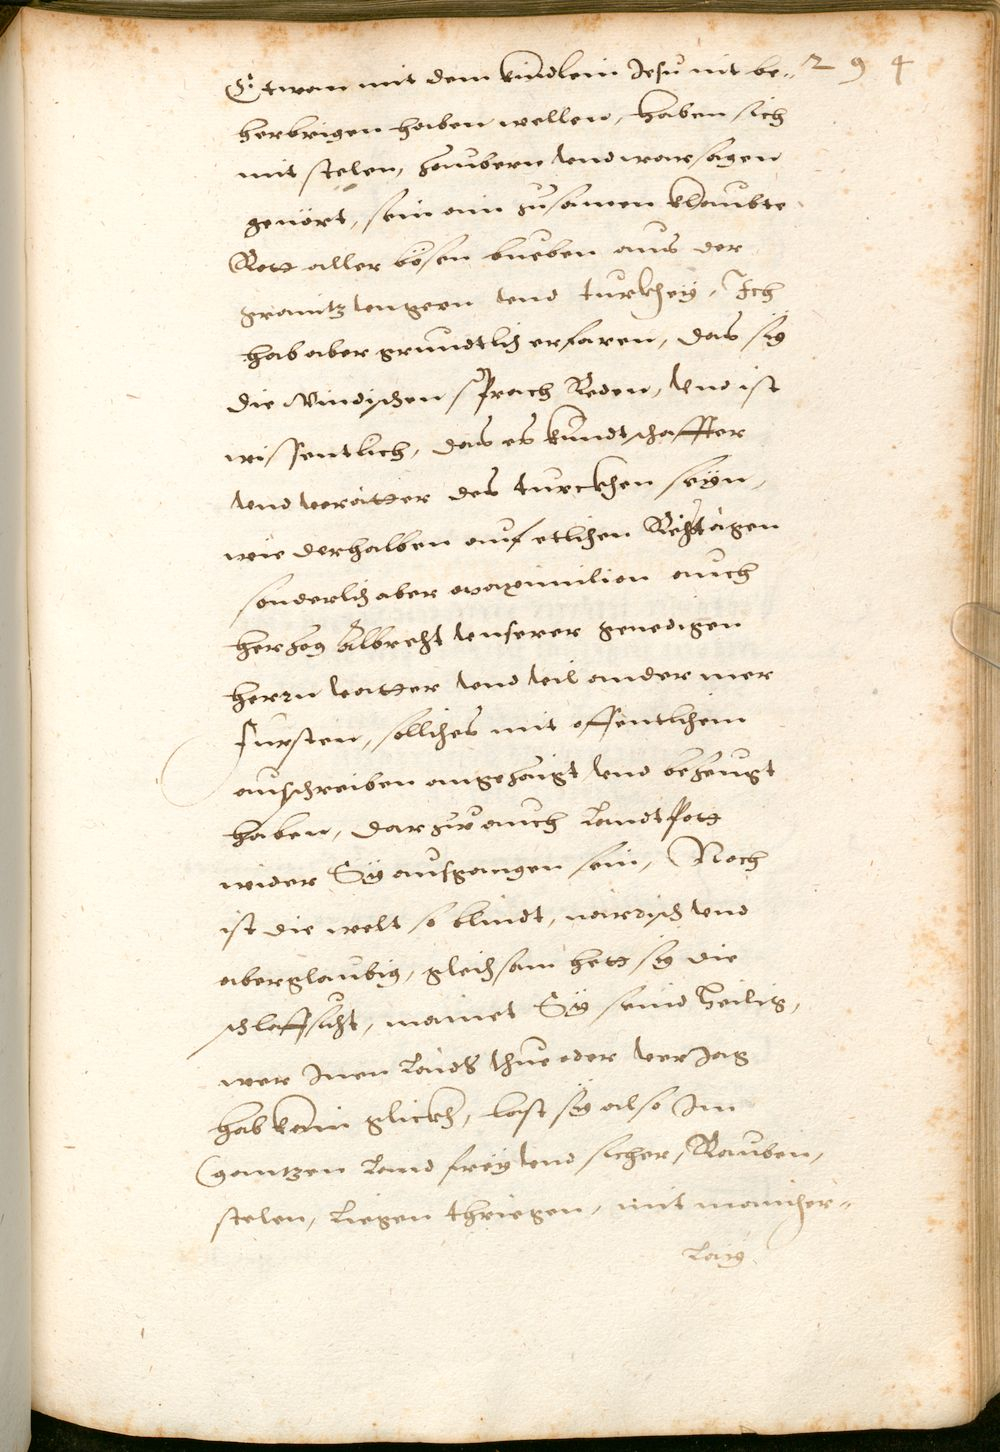 294
Etwan mit dem kindlein Jesu nit be-
herbrigen haben wellen, haben sich
mit stelen, zaubern vnd warsagen
genört, sein ain zusamen klaubte
Rott aller bösen bueben aus der
granitz vngern vnd turckhey, Ich
hab aber grundtlich erfaren, das sy
die Windischen sprach Reden, vnd ist
wissentlich, das es kundtschaffter
vnd verätter des turckhen seyn,
wie derhalben auf etlichen Reichstägen
sonderlich aber maximilian auch
herzog Albrecht vnserer genedigen
herrn vatter vnd vil ander mer
fursten, sollches mit offentlichem
ausschreiben angezaigt vnd bezeugt
haben, dar zu auch Landtpott
wider Sy ausgangen sein, Noch
ist die welt so blindt, närrisch vnd
aberglaubig, gleichsam hett sy die
schlaffsicht, mainet Sy seind heilig,
wer Inen Laids thue oder ver Jag
hab kain glickh, last sy also Im
gantzen Land frey vnd sicher, Rauben,
stelen, Liegen thriegen, mit mancher-
Lay